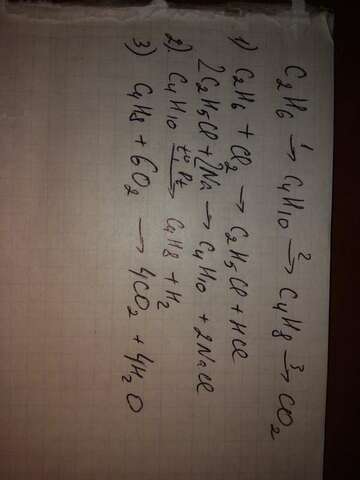 C2H6 1→ C4H10 2→ C4H8 3→ CO2
1) C2H6 + Cl2 → C2H5Cl + HCl
2C2H5Cl + 2Na → C4H10 + 2NaCl
2) C4H10 t°, Pt→ C4H8 + H2
3) C4H8 + 6O2 → 4CO2 + 4H2O